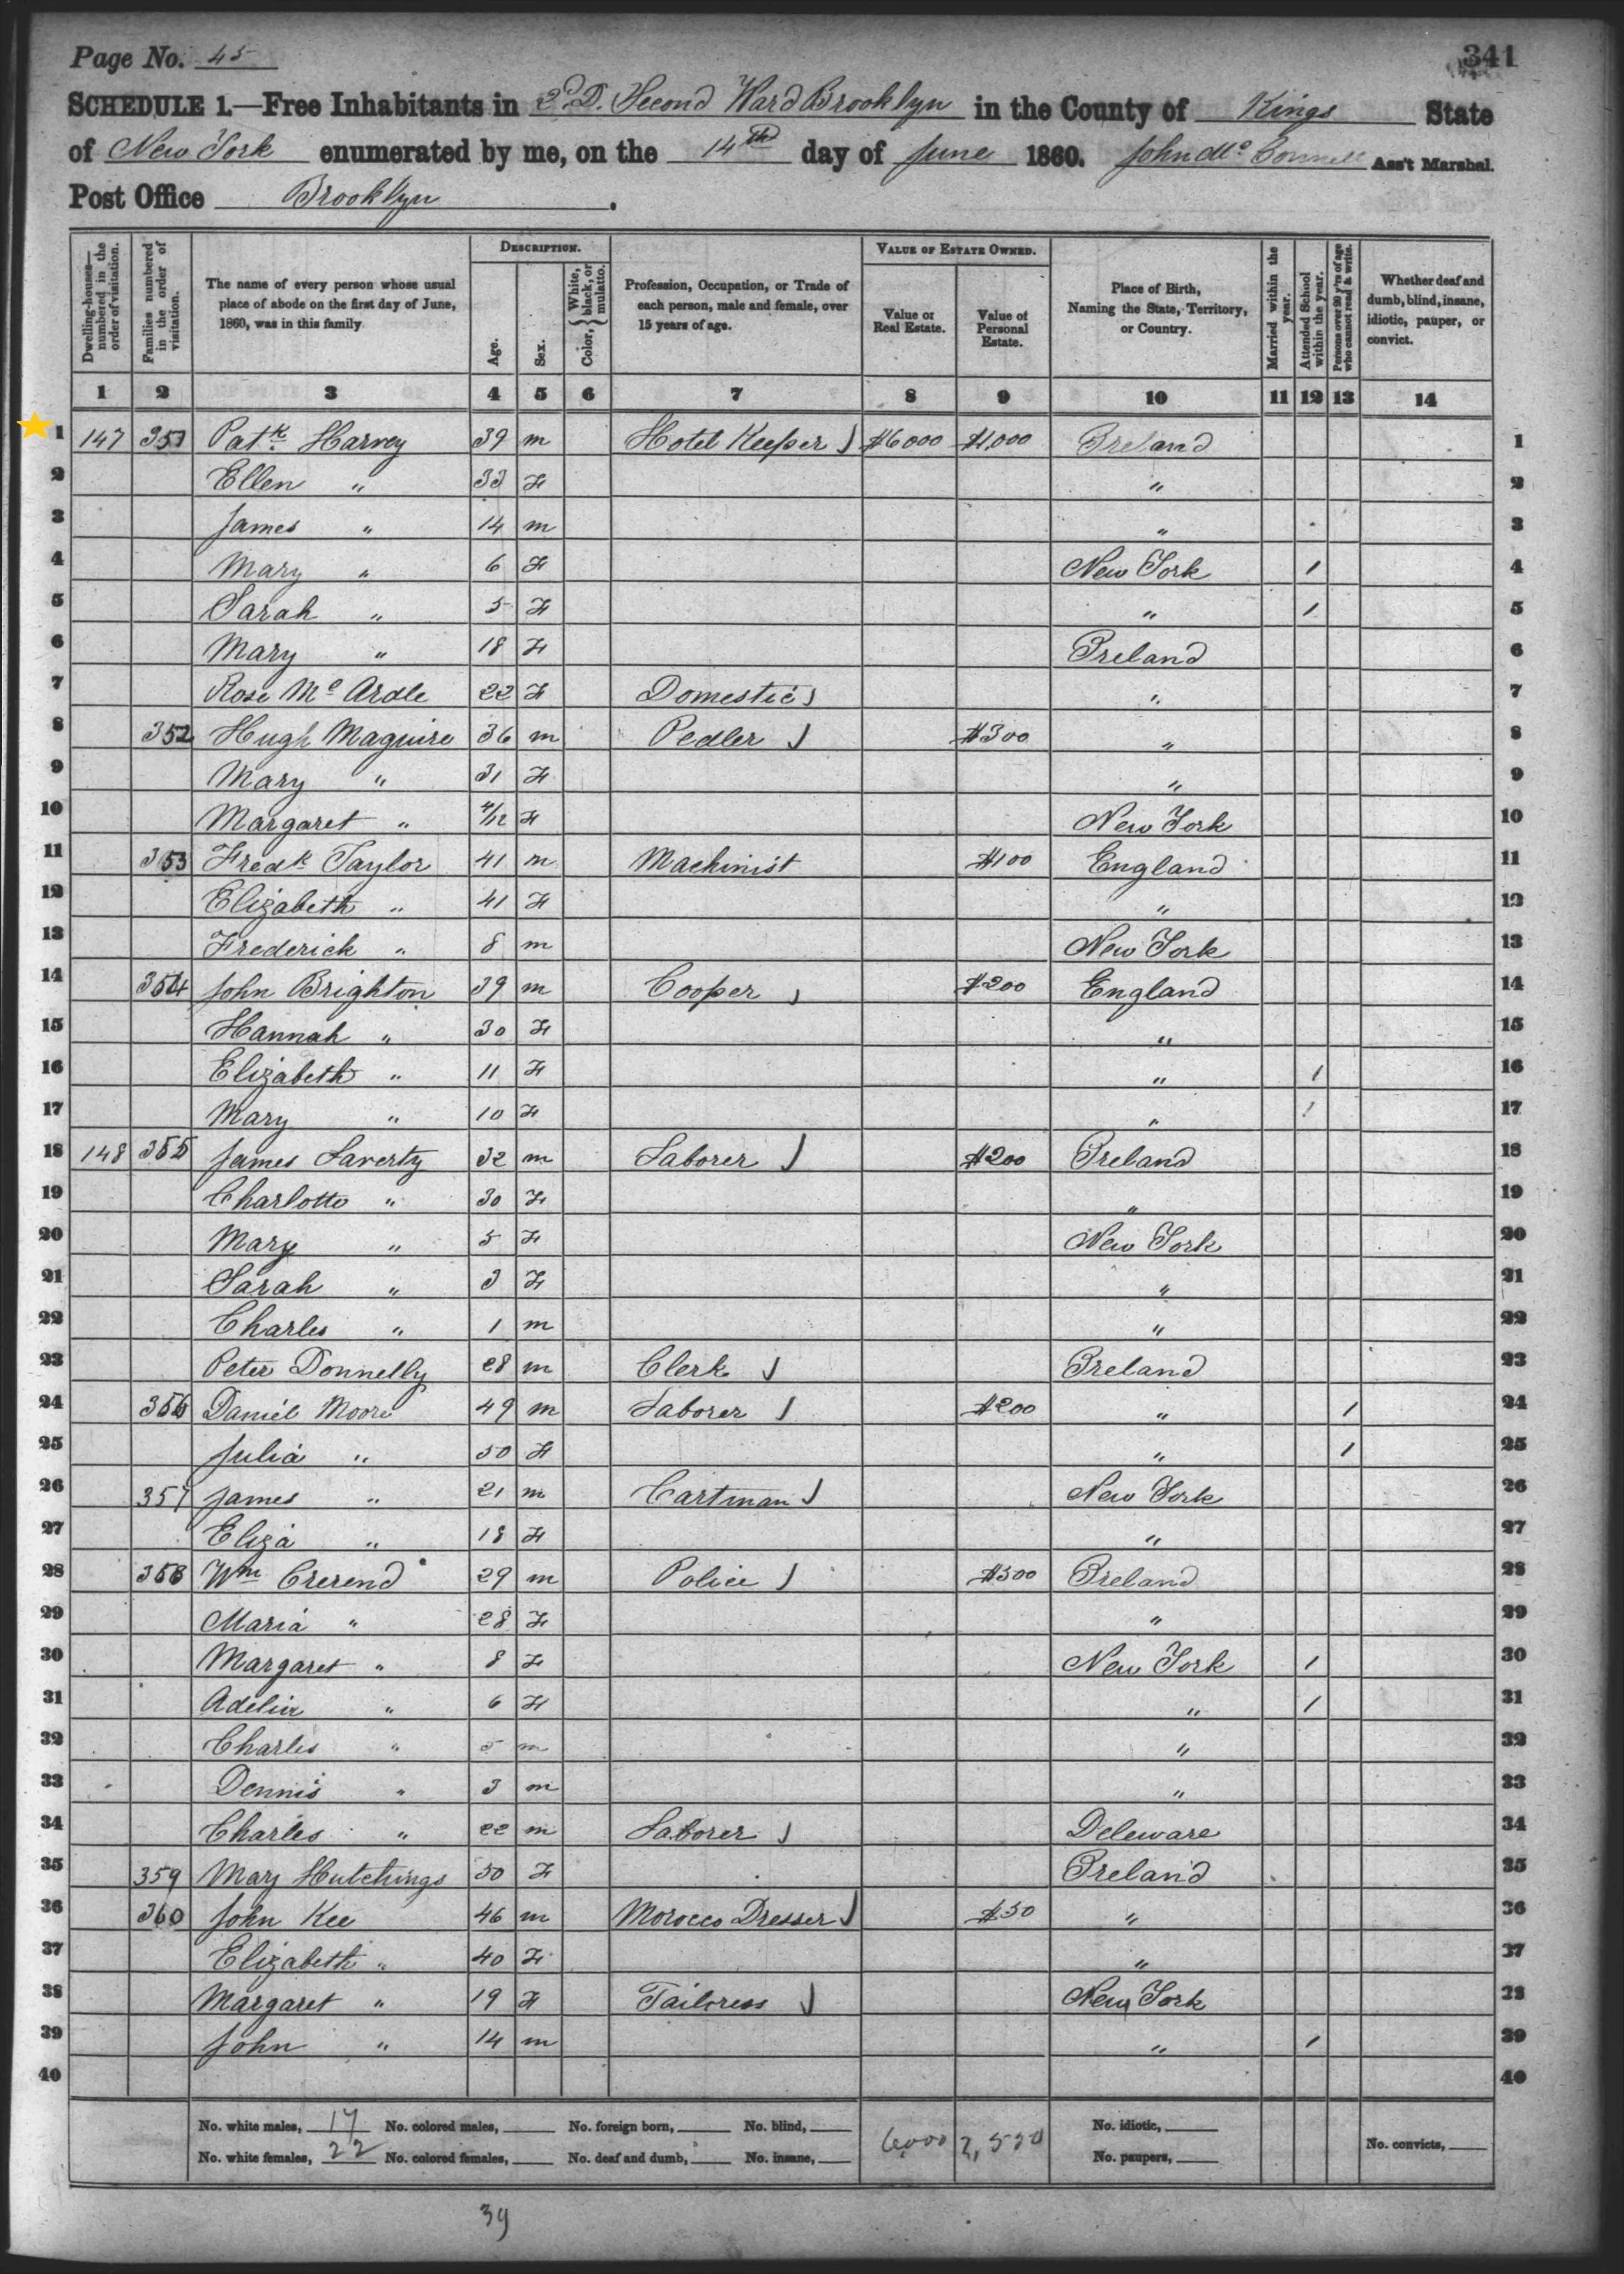 Page No. 45
341
SCHEDULE 1.—Free Inhabitants in 2ᵈ D. Second Ward Brooklyn in the County of Kings State
of New York enumerated by me, on the 14th day of June 1860. John Mc Ass't Marshal.
Post Office Brooklyn.
Dwelling-houses—numbered in the order of visitation.
Families numbered in the order of visitation.
The name of every person whose usual place of abode on the first day of June, 1860, was in this family
DESCRIPTION.
Age.
Sex.
Color, { White, black, or mulatto.
Profession, Occupation, or Trade of each person, male and female, over 15 years of age.
VALUE OF ESTATE OWNED.
Value of Real Estate.
Value of Personal Estate.
Place of Birth, Naming the State, Territory, or Country.
Married within the year.
Attended School within the year.
Persons over 20 y'rs of age who cannot read & write.
Whether deaf and dumb, blind, insane, idiotic, pauper, or convict.
1 2 3 4 5 6 7 8 9 10 11 12 13 14
1 147 351 Patk. Harvey 39 m Hotel Keeper $6000 $1,000 Ireland 1
2 Ellen " 33 F " 2
3 James " 14 m " 3
4 Mary " 6 F New York / 4
5 Sarah " 5 F " / 5
6 Mary " 18 F Ireland 6
7 Rose Mc Ardle 22 F Domestic " 7
8 352 Hugh Maguire 36 m Pedler $300 " 8
9 Mary " 31 F " 9
10 Margaret " 4/12 F New York 10
11 353 Fredk Taylor 41 m Machinist $100 England 11
12 Elizabeth " 41 F " 12
13 Frederick " 8 m New York 13
14 354 John Brighton 39 m Cooper $200 England 14
15 Hannah " 30 F " 15
16 Elizabeth " 11 F " / 16
17 Mary " 10 F " / 17
18 148 355 James Laverty 32 m Laborer $200 Ireland 18
19 Charlotte " 30 F " 19
20 Mary " 5 F New York 20
21 Sarah " 3 F " 21
22 Charles " 1 m " 22
23 Peter Donnelly 28 m Clerk Ireland 23
24 356 Daniel Moore 49 m Laborer $200 " / 24
25 Julia " 50 F " / 25
26 357 James " 21 m Cartman New York 26
27 Eliza " 18 F " 27
28 358 Wm Crerend 29 m Police $300 Ireland 28
29 Maria " 28 F " 29
30 Margaret " 8 F New York / 30
31 Adelia " 6 F " / 31
32 Charles " 5 m " 32
33 Dennis " 3 m " 33
34 Charles " 22 m Laborer Deleware 34
35 359 Mary Hutchings 50 F Ireland 35
36 360 John Kee 46 m Morocco Dresser $50 " 36
37 Elizabeth " 40 F " 37
38 Margaret " 19 F Tailoress New York 38
39 John " 14 m " / 39
40 40
No. white males, 17 No. colored males, No. foreign born, No. blind, No. idiotic,
No. white females, 22 No. colored females, No. deaf and dumb, No. insane, 6000 No. paupers, No. convicts,
39